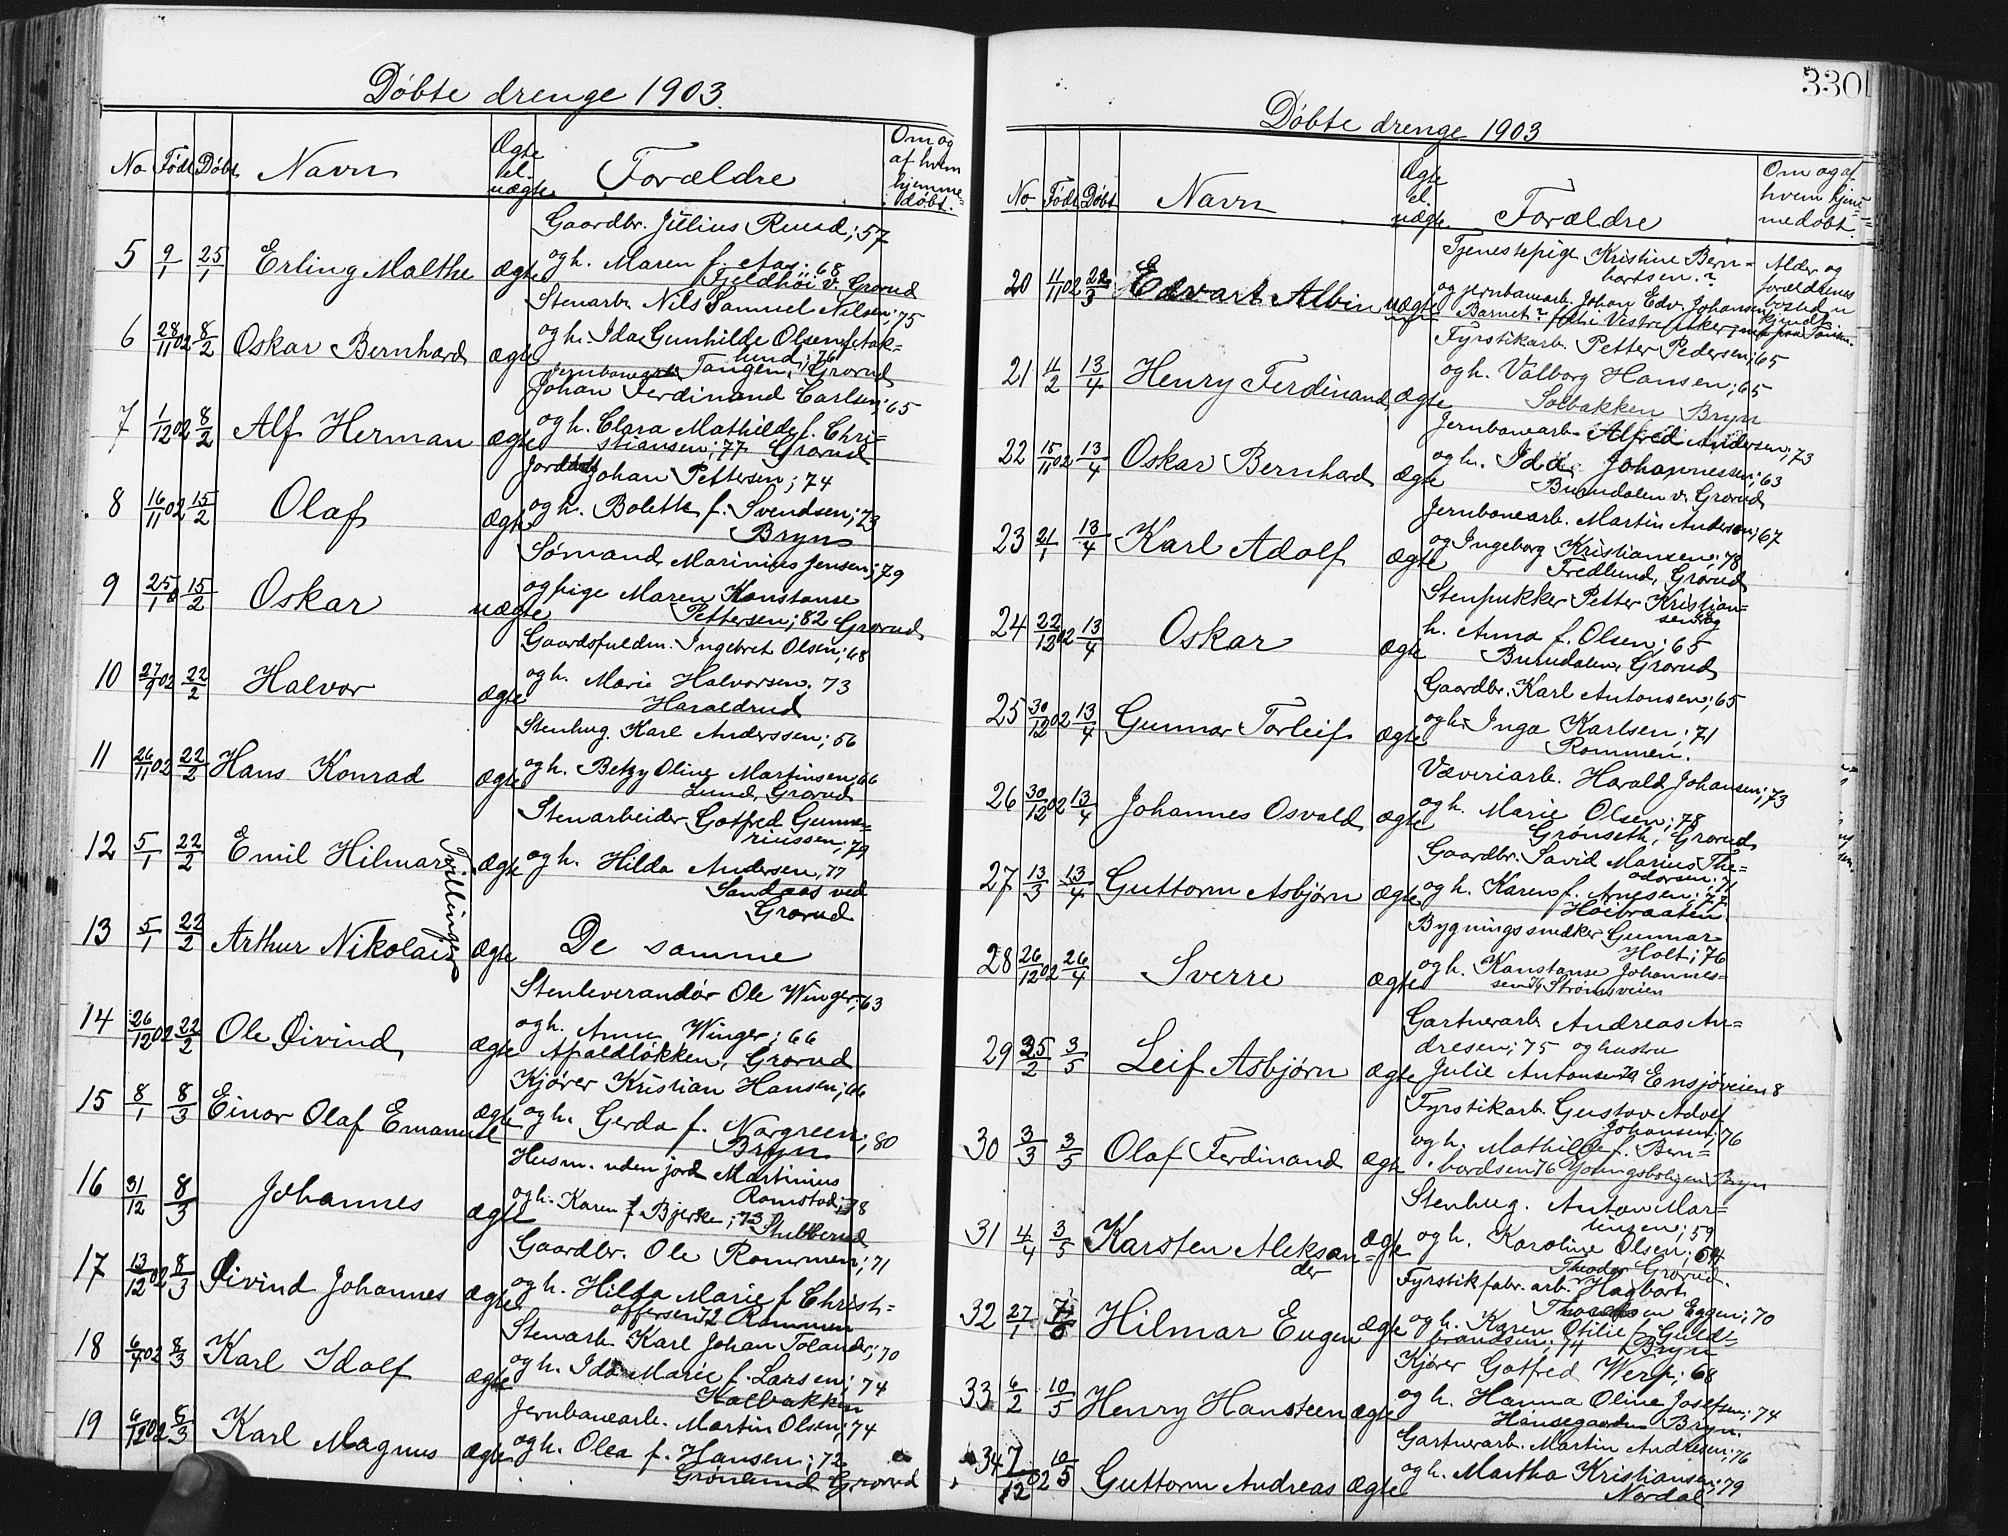 Døbte drenge 1903.
No Født Døbt Navn Ægte el. uægte Forældre Om og af hvem hjemme= døbt.
Gaardbr. Julius Ruud; 57
5 9/1 25/1 Erling Malthe ægte og h. Maren f. Aas; 68
Fjeldhöi v. Grorud
Stenarb. Nils Samuel Nilsen; 75
6 28/11 02 8/2 Oskar Bernhard ægte og h. Ida Gunhilde Olsen
lund; 76
Tangen, Grorud
Jernbanearb.
Johan Ferdinand Carlsen; 65
7 1/12 02 8/2 Alf Herman ægte og h. Clara Mathilde f. Chri=
stiansen; 77 Grorud
Johan Pettersen; 74
8 16/11 02 15/2 Olaf ægte og h. Bolette f. Svendsen; 73
Bryn
Sømand Marinius Jensen; 79
9 25/1 15/2 Oskar uægte og pige Maren Konstanse
Pettersen; 82 Grorud
Gaardsfuldm. Ingebret Olsen; 68
10 27/9 02 22/2 Halvor ægte og h. Marie Halvorsen. 73
Haraldrud
Stenhug. Karl Anderssen; 56
11 26/11 02 22/2 Hans Konrad ægte og h. Betzy Oline Martinsen; 66
Lund, Grorud
Stenarbeider Gotfred Gunne=
riussen; 79
12 5/1 22/2 Emil Hilmar ægte og h. Hilda Andersen, 77
Tvillinger
Sandaas ved
Grorud
13 5/1 22/2 Arthur Nikolai ægte De samme
Stenleverandør Ole Winger; 63
14 26/12 02 22/2 Ole Øivind ægte og h. Anne Winger; 66
Apaldløkken, Grorud
Kjører Kristian Hansen; 66
15 8/1 8/3 Einar Olaf Emanuel ægte og h. Gerda f. Norgreen; 80
Bryn
Husm. uden jord Martinius
Ramstad; 78
16 31/12 8/3 Johannes ægte og h. Karen f. Bjerke; 73
Stubberud
Gaardbr. Ole Rommen; 71
17 13/12 02 8/3 Øivind Johannes ægte og h. Hilda Marie f Christ=
offersen 72 Rommen
Stenarb. Karl Johan Tolander; 70
18 6/9 02 8/3 Karl Idolf ægte og h. Ida Marie f. Larsen; 74
Kalbakken
Jernbanearb. Martin Olsen; 74
19 6/12 02 8/3 Karl Magnus ægte og h. Olea f. Hansen; 72
Grønlund Grorud
330
Døbte drenge 1903
No. Født Døbt Navn Ægte el. uægte Forældre Om og af hvem hjem= medøbt.
Tjenestepige Kristine Bern=
hartsen. ?
20 11/11 02 22/3 Edvart Albin uægte og jernbanearb. Johan Edv. Johansen
Alder og forældrenes bosted
Barnet ? Vestre Aker,
Fyrstikarb. Petter Pedersen; 65
21 11/2 13/4 Henry Ferdinand ægte og h. Valborg Hansen; 65
Solbakken Bryn
Jernbanearb. Alfred Andersen; 73
22 15/11 02 13/4 Oskar Bernhard ægte og h. Ida Johannessen; 63
Burudalen v. Grorud
Jernbanearb. Martin Andersen; 67
23 21/1 13/4 Karl Adolf ægte og Ingeborg Kristiansen; 78
Fredlund, Grorud
Stenpukker Petter Kristian=
sen og
24 22/12 02 13/4 Oskar ægte h. Anna f. Olsen; 65
Burudalen, Grorud
Gaardbr. Karl Antonsen; 65
25 30/12 02 13/4 Gunnar Torleif ægte og h. Inga Karlsen; 71
Rommen.
Væveriarb. Harald Johansen; 73
26 30/12 02 13/4 Johannes Osvald ægte og h. Marie Olsen; 78
Grønseth, Grorud
Gaardbr. David Marius The=
odorsen; 71
27 13/3 13/4 Guttorm Asbjørn ægte og h. Karen f. Arnesen; 77
Høibraaten
Bygningssnedker Gunnar
Holt; 76
28 26/12 02 26/4 Sverre ægte og h. Konstanse Johannes=
sen 74 Strømsveien
Gartnerarb. Andreas An=
dresen; 75 og hustru
29 25/2 3/5 Leif Asbjørn ægte Julie Antonsen Ensjøveien 8
Fyrstikarb. Gustav Adolf
Johansen; 76
30 3/3 3/5 Olaf Ferdinand ægte og h. Mathilde f. Bern=
hardsen 76 Youngsboligen Bryn
Stenhug. Anton Mar=
tinsen; 59
31 4/4 3/5 Karsten Aleksan=
der ægte og h. Karoline Olsen; 64
Grorud.
Theodor
Fyrstikfabr. arb. Hagbart
Eggen; 70
32 27/1 Hilmar Eugen ægte og h. Karen Otilie f. Guld=
brandsen; 74 Bryn
Kjører Gotfred Werp; 68
33 6/2 10/5 Henry Hansteen ægte og h. Hanna Oline Josefsen; 74
Hansegaarden Bryn.
Gartnerarb. Martin Andresen; 76
34 7/12 02 10/5 Guttorm Andreas ægte og h. Martha Kristiansen; 79
Nordal